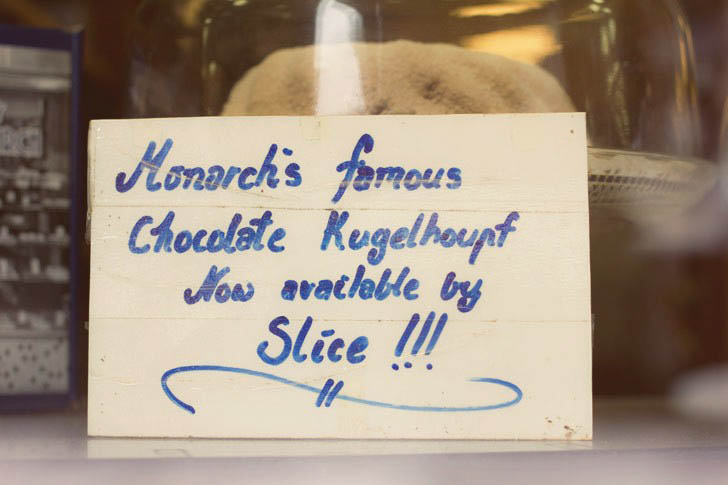 Monarch's famous
Chocolate Kugelhoupf
Now available by
Slice !!!